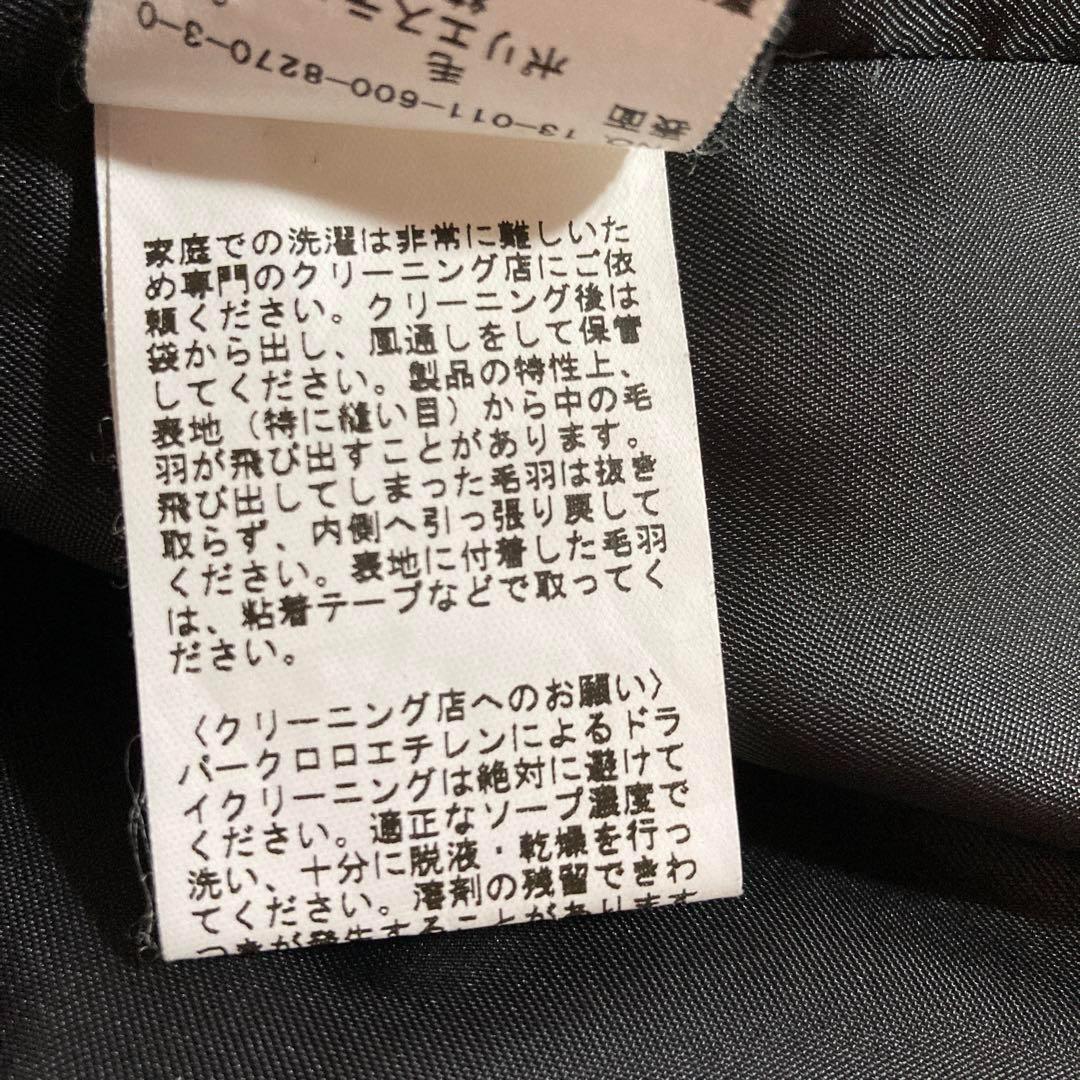 13-011-600-8270-3-0
表面
毛
家庭での洗濯は非常に難しいた
め専門のクリーニング店にご依
頼ください。クリーニング後は
袋から出し、風通しをして保管
してください。製品の特性上、
表地（特に縫い目）から中の毛
羽が飛び出すことがあります。
飛び出してしまった毛羽は抜き
取らず、内側へ引っ張り戻して
ください。表地に付着した毛羽
は、粘着テープなどで取ってく
ださい。
〈クリーニング店へのお願い〉
パークロロエチレンによるドラ
イクリーニングは絶対に避けて
ください。適正なソープ濃度で
洗い、十分に脱液・乾燥を行っ
てください。溶剤の残留できわ
つきが発生することがあります